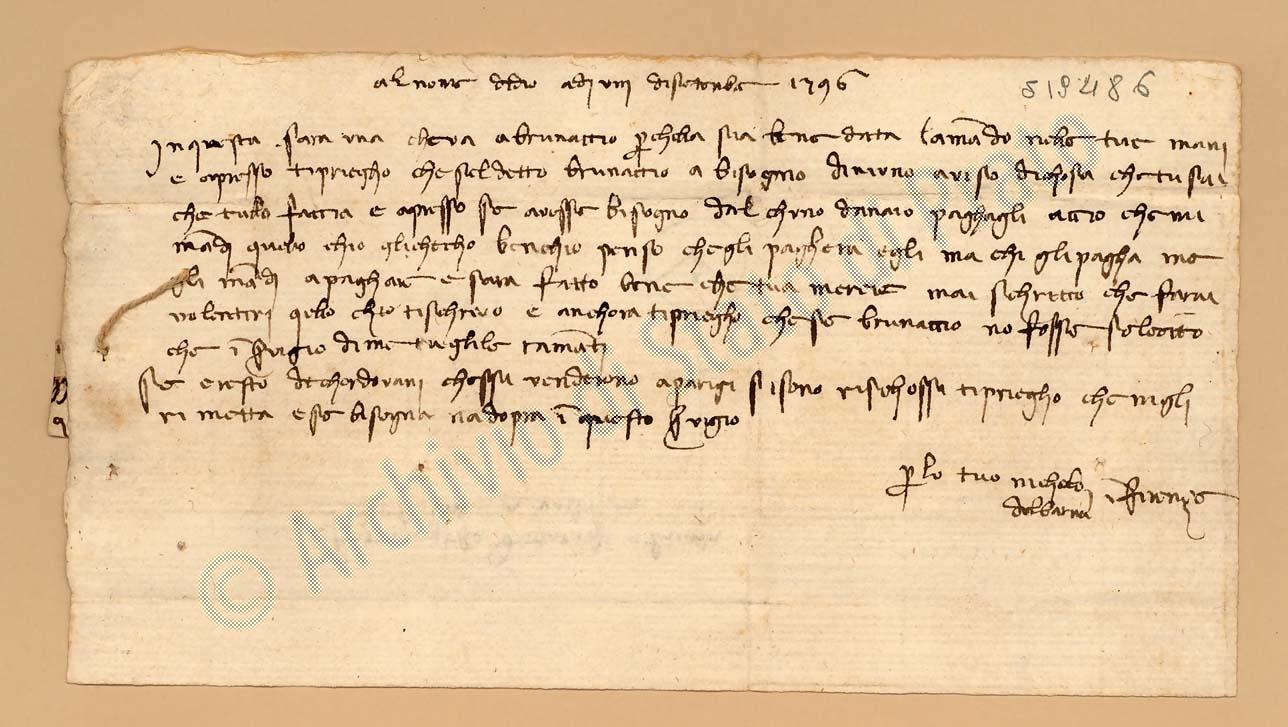 al nome di dio adj viii di setenbre 1396
519486
In questa sara una che va a brunaccio perche lla sia bene data la mando nelle tue mani
e apresso ti priegho che se l detto brunaccio a bisogno di niuno aviso di chosa che tu sai
che tu lo faccia e apresso se avesse bisogno d alchuno danaio paghagli accio che mi
mādj quello ch io gli chiecho bench io penso che gli paghera egli ma chi gli pagha me
gli mādj a paghare e sara fatto bene che tu a me mai schretto che farai
volentieri q̄llo ch io ti schrivo e anchora ti priegho che se brunaccio nō fosse solecito
che ī s̄vigio di me tu gli le ramātj
Se e resto de chordovani che ssi venderono a parigi si sono rischossi ti priegho che mi gli
rimetta e se bisogna t adopra ī questo s̄vigio
p̄ lo tuo nicholo
del barna
ī firenze
© Archivio di Stato di Prato